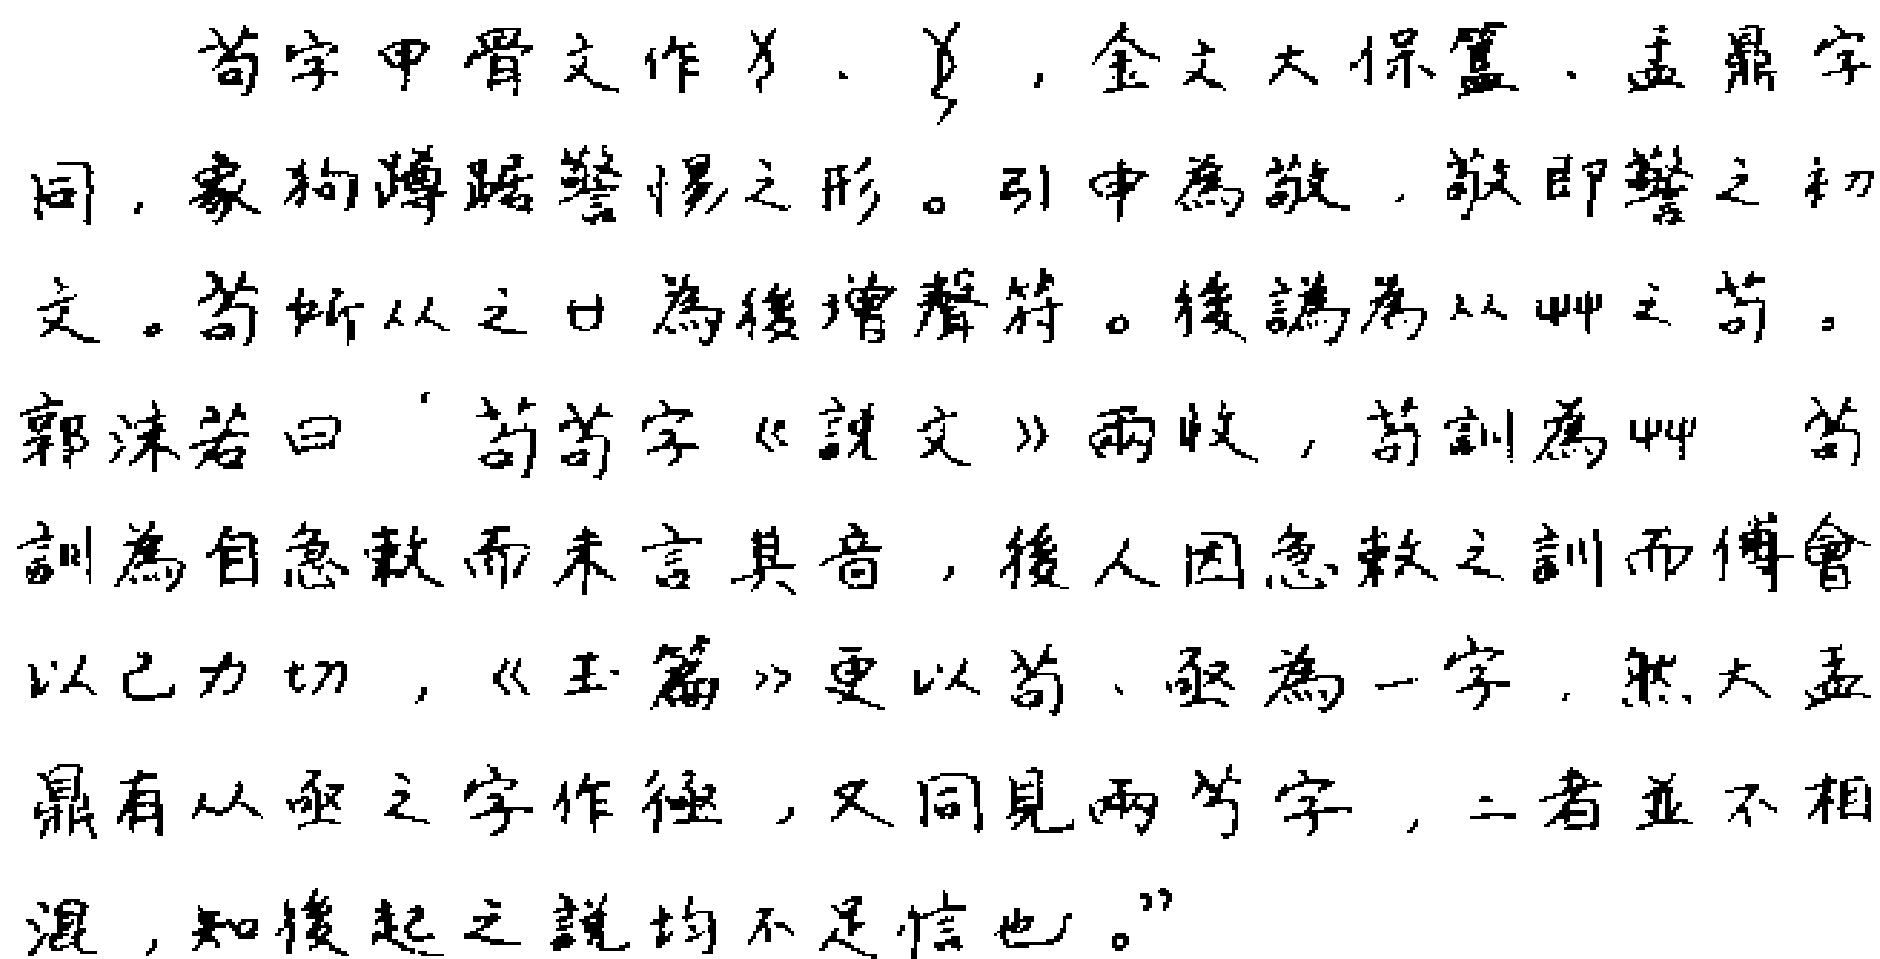 茍字甲骨文作、,金文大保簋、盂鼎字
同,象狗蹲踞警惕之形。引申為敬,敬即警之初
文。茍所从之口為後增聲符。後譌為从艸之苟。
郭沫若曰‘苟茍字《說文》兩收,苟訓為艸 茍
訓為自急敕而未言其音,後人因急敕之訓而傅會
以己力切,《玉篇》更以茍、亟為一字,然大盂
鼎有从亟之字作極,又同見兩芍字,二者並不相
混,知後起之說均不足信也。”